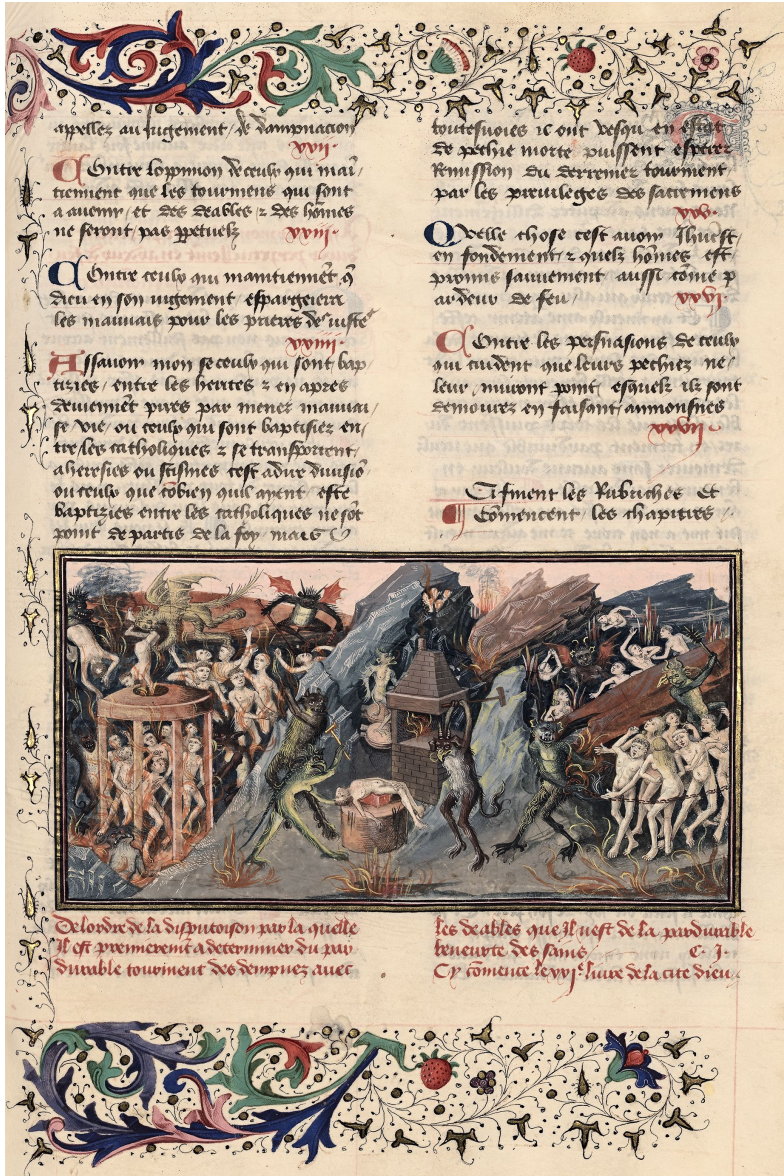 appellez au jugement / de dampnacion
xxii.
Contre loppinion de ceulx qui main/
tiennent que les tourmens qui sont
a avenir / et des deables & des hõmes
ne seront pas ppetuelz xxiii.
Contre ceulx qui maintiennẽt q̃
dieu en son jugement / espargeiera
les mauvais pour les prieres des justes
xxiiii.
Assavoir mon se ceulx qui sont bap/
tiziez / entre les herites & en apres
deviennẽt pires par mener mauvai/
se vie / ou ceulx qui sont baptisiez en/
tre les catholiques & se transportent /
a heresies ou scismes cest a dire divisiõ
ou ceulx que cõbien quil ayent este
baptiziez entre les catholiques ne sõt
point departis de la foy / mais
toutesvoies ilz ont vesqu en
de pechie morte puissent esperer
Remission du derrenier tourment /
par les previleges des sacremens
xxv.
Quelle chose cest avoir Jhucst /
en fondement / & quelz hõmes est /
promis sauvement aussi cõme p
ardeur de feu / xxvi.
Contre les persuasions de ceulx
qui cuident que leurs pechiez ne /
leur / nuiront point / esquelz ilz sont
demourez en faisant / aumosnes
xxvii.
Cy finent les Rubriches Et
Cõmencent / les chapitres
De lordre de la disputoison par la quelle
Il est premieremẽt a determiner du par
durable tourment des dempnez avec
les deables que Il nest de la pardurable
beneurte des sains / C. J.
Cy cõmence le xxi.e livre de la cite dieu